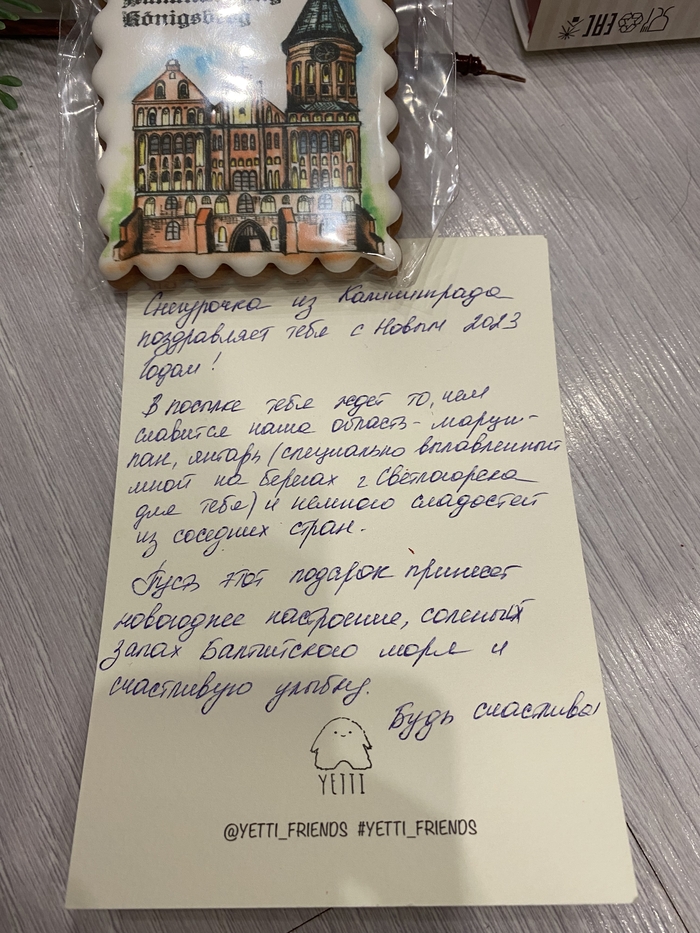 Königsberg
EAC
Снегурочка из Калининграда
поздравляет тебя с Новым 2023
Годом!
В посылке тебя ждет то, чем
славится наша область - марци-
пан, янтарь (специально выловленный
мной на берегах г Светлогорска
для тебя) и немного сладостей
из соседних стран.
Пусть этот подарок принесет
новогоднее настроение, соленый
запах Балтийского моря и
счастливую улыбку.
Будь счастлива
YETTI
@YETTI_FRIENDS #YETTI_FRIENDS